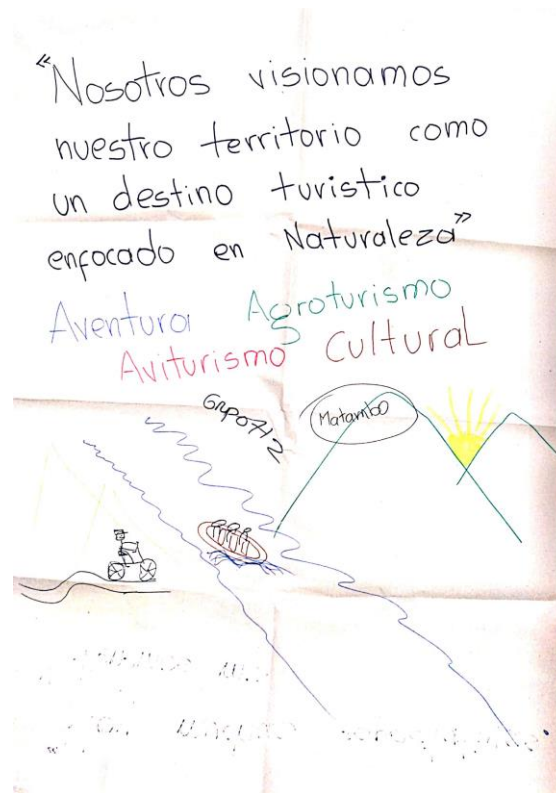 “Nosotros visionamos
nuestro territorio como
un destino turistico
enfocado en Naturaleza”
Aventura Agroturismo
Aviturismo Cultural
Matambo